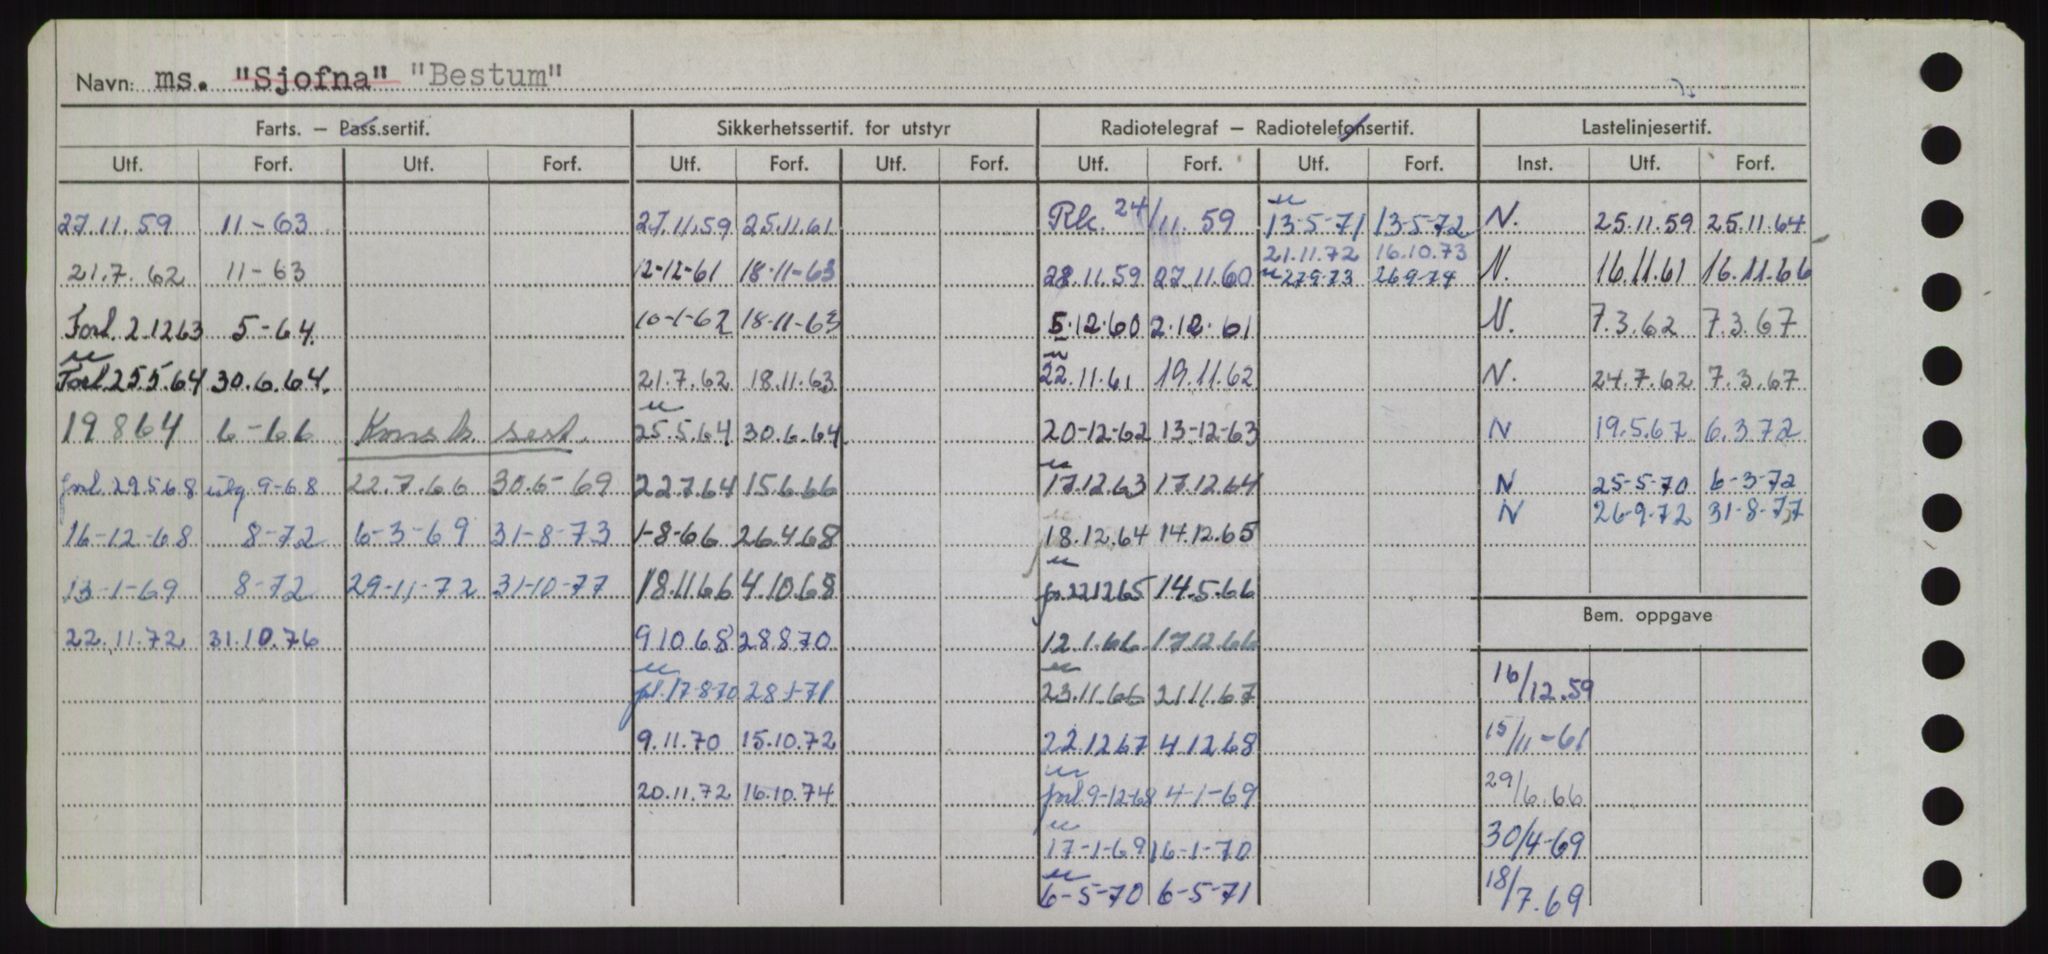 Navn: ms. "Sjofna" "Bestum"
Farts. – Pass.sertif. Sikkerhetssertif. for utstyr Radiotelegraf – Radiotelefonsertif. Lastelinjesertif.
Utf. Forf. Utf. Forf. Utf. Forf. Utf. Forf. Utf. Forf. Utf. Forf. Inst. Utf. Forf.
27.11.59 11-63 27.11.59 25.11.61 Rk. 24/11.59 13-5-71 13-5-72 N. 25.11.59 25.11.64
21.11.72 16.10.73
21.7.62 11-63 12-12-61 18-11-63 28.11.59 27.11.60 27.9.73 26.9.74 N. 16.11.61 16.11.66
Forl. 2.12.63 5-64. 10-1-62 18-11-63 5.12.60 2.12.61 N. 7.3.62 7.3.67
Forl. 25.5.64 30.6.64. 21.7.62 18.11.63 22.11.61 19.11.62 N. 24.7.62 7.3.67
19864 6-66 25.5.64 30.6.64 20-12-62 13-12-63 N 19.5.67 6.3.72
forl. 29.5.68 9-68 22.7.66 30.6-69 22.7.64 15.6.66 17.12.63 17.12.64 N 25-5-70 6-3-72
N 26-9-72 31-8-77
16-12-68 8-72 6-3-69 31-8-73 1-8-66 26.4.68 18.12.64 14.12.65
13-1-69 8-72 29-11-72 31-10-77 18.11.66 4.10.68 22.12.65 14.5.66
Bem. oppgave
22.11.72 31.10.76 9.10.68 28.8.70 12.1.66 17.12.66
forl. 17-8-70 28-1-71 23.11.66 21.11.67 16/12.59
9.11.70 15.10.72 22.12.67 4.12.68 15/11-61
20.11.72 16.10.74 forl. 9-12-68 4-1-69 29/6.66
17-1-69 16-1-70 30/4-69
6-5-70 6-5-71 18/7.69